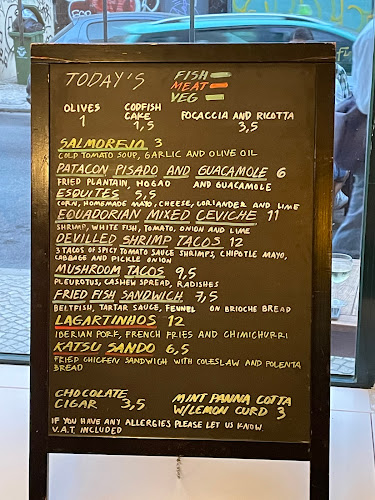 TODAY'S
FISH
MEAT
VEG
OLIVES
1
CODFISH
CAKE
1,5
FOCACCIA AND RICOTTA
3,5
SALMOREJO 3
COLD TOMATO SOUP, GARLIC AND OLIVE OIL
PATACON PISADO AND GUACAMOLE 6
FRIED PLANTAIN, HOGAO AND GUACAMOLE
ESQUITES 5,5
CORN, HOMEMADE MAYO, CHEESE, CORIANDER AND LIME
EQUADORIAN MIXED CEVICHE 11
SHRIMP, WHITE FISH, TOMATO, ONION AND LIME
DEVILLED SHRIMP TACOS 12
3 TACOS OF SPICY TOMATO SAUCE SHRIMPS, CHIPOTLE MAYO,
CABBAGE AND PICKLE ONION
MUSHROOM TACOS 9,5
PLEUROTUS, CASHEW SPREAD, RADISHES
FRIED FISH SANDWICH 7,5
BELTFISH, TARTAR SAUCE, FENNEL ON BRIOCHE BREAD
LAGARTINHOS 12
IBERIAN PORK, FRENCH FRIES AND CHIMICHURRI
KATSU SANDO 6,5
FRIED CHICKEN SANDWICH WITH COLESLAW AND POLENTA
BREAD
CHOCOLATE
CIGAR 3,5
MINT PANNA COTTA
W/LEMON CURD 3
IF YOU HAVE ANY ALLERGIES PLEASE LET US KNOW.
V.A.T. INCLUDED